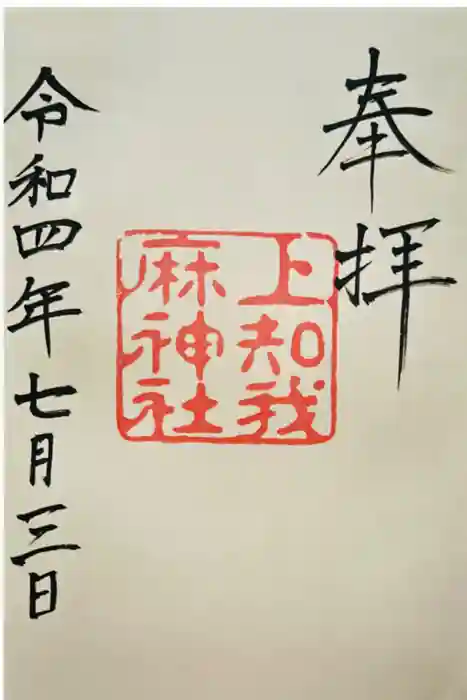 奉拝
上知我
麻神社
令和四年七月三日